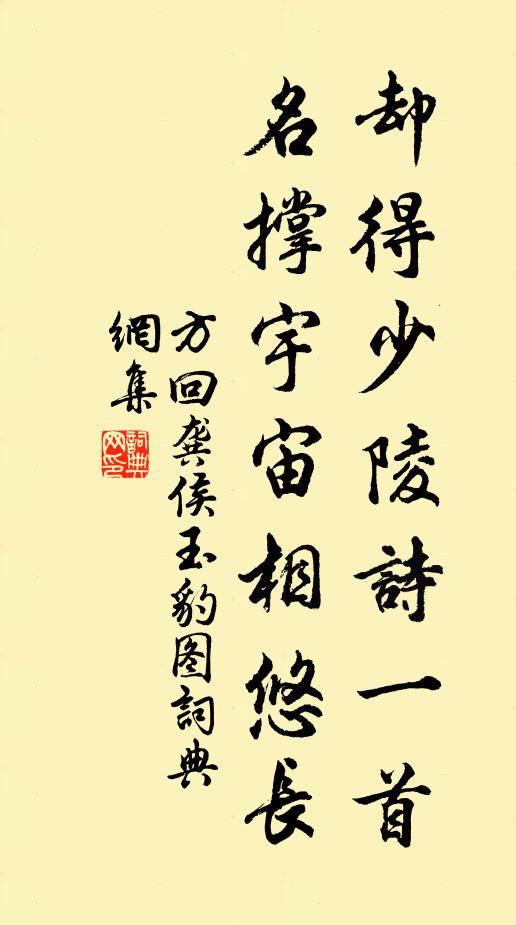 却得少陵詩一首
名撐宇宙相悠長
方回龚侯玉豹图詞典
網集
詞典
网印